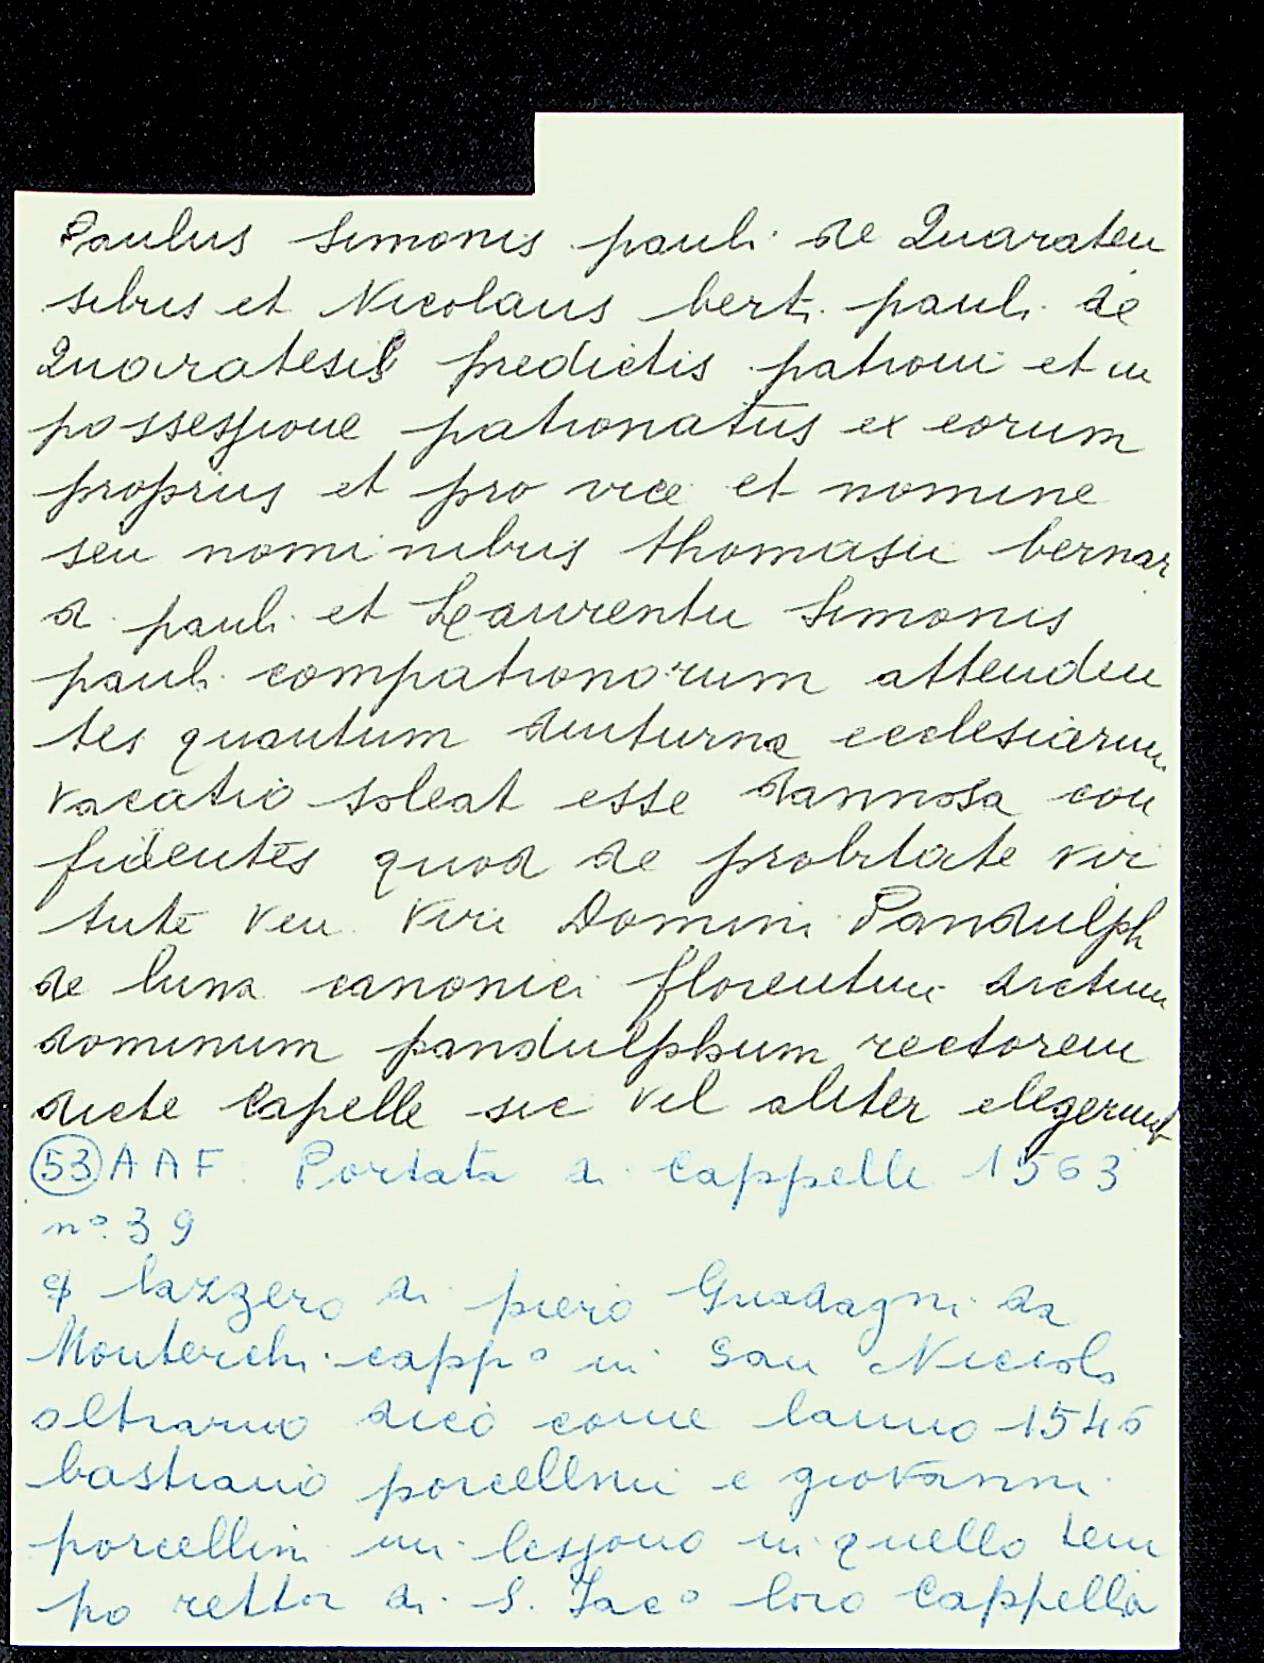 Paulus Simonis pauli de Quaraten
sibus et Nicolaus berti pauli de
Quaratesis predictis patroni et in
possessione patronatus ex eorum
propriis et pro vice et nomine
seu nominibus thomasii bernar
di pauli et Laurentii Simonis
pauli compatronorum attenden
tes quantum diuturna ecclesiarum
vacatio soleat esse dannosa con
fidentes quod de probitate vir
tute ven. viri Domini Pandulphi
de luna canonici florentini dictum
dominum pandulphum rectorem
dicte Capelle sic vel aliter elegerunt
(53) AAF. Portata di Cappelle 1563
nº. 39
lazzero di piero Guadagni da
Monterchi cappº in San Niccolo
oltrarno dico come lanno 1546
bastiano porcellini e giovanni
porcellini mi lessono in quello tem
po rettor di S. Jacº loro Cappella